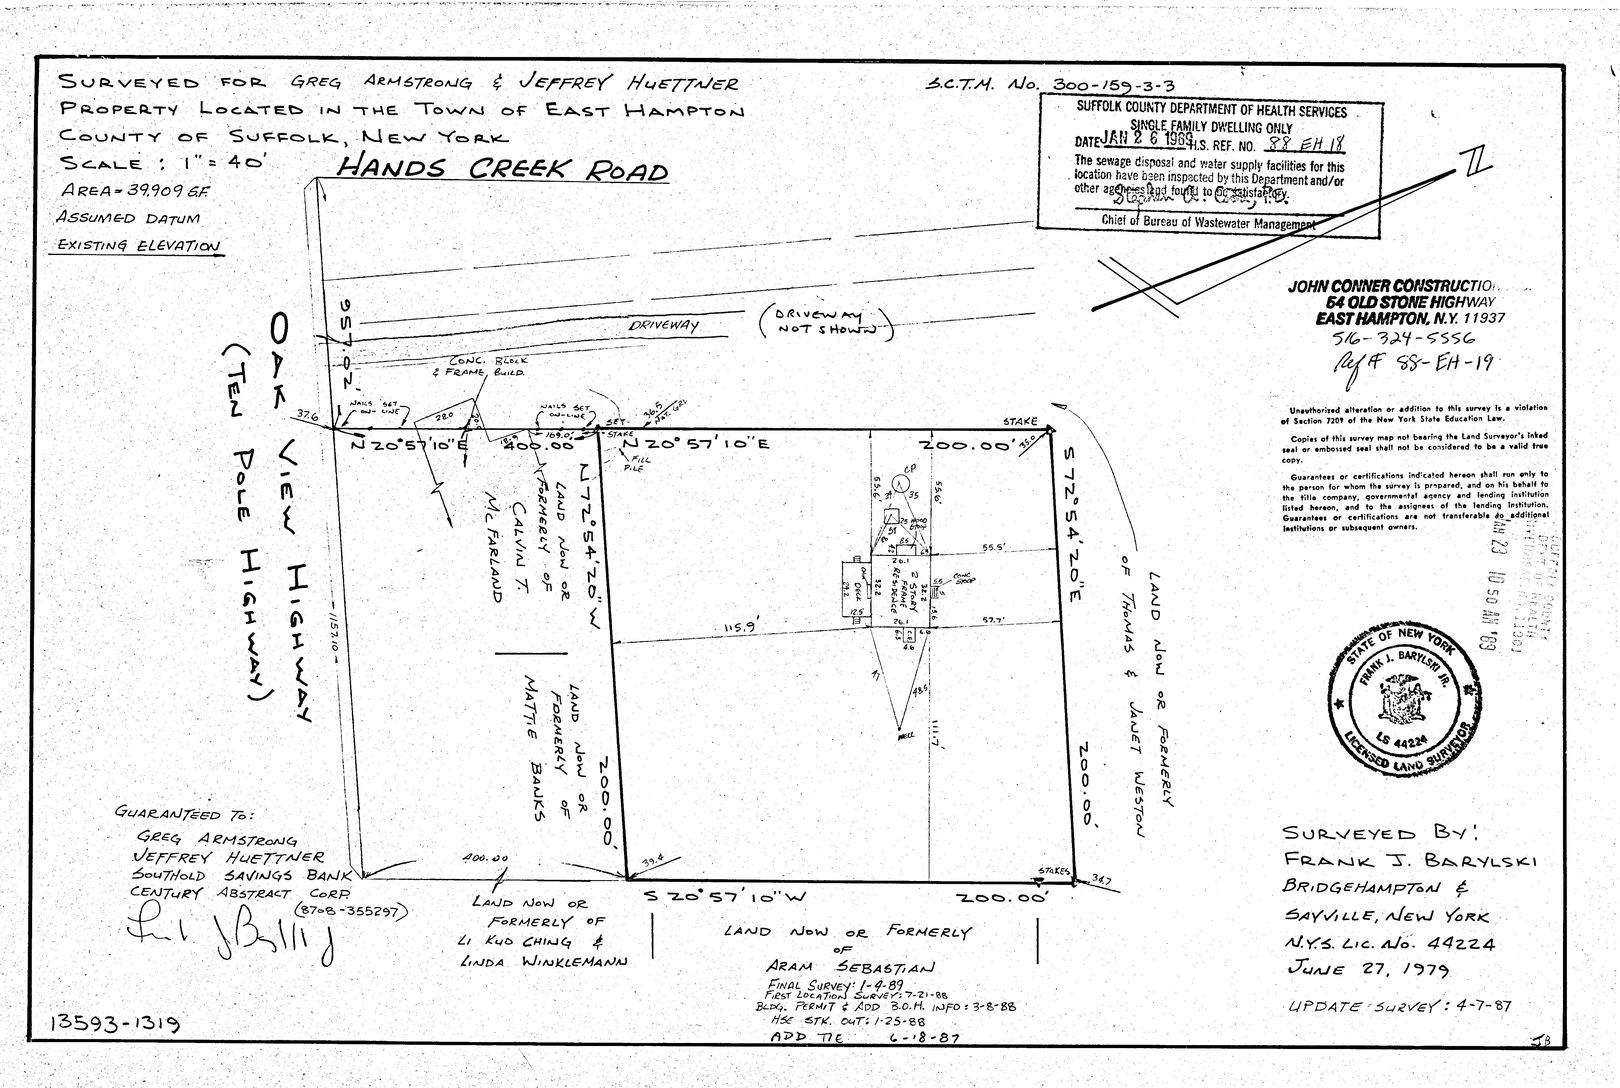 SURVEYED FOR GREG ARMSTRONG & JEFFREY HUETTNER
PROPERTY LOCATED IN THE TOWN OF EAST HAMPTON
COUNTY OF SUFFOLK, NEW YORK
SCALE : 1" = 40'
AREA = 39,909 S.F.
ASSUMED DATUM
EXISTING ELEVATION
HANDS CREEK ROAD
S.C.T.M. No. 300-159-3-3
SUFFOLK COUNTY DEPARTMENT OF HEALTH SERVICES
SINGLE FAMILY DWELLING ONLY
DATE JAN 26 1989 H.S. REF. NO. 88 EH 18
The sewage disposal and water supply facilities for this
location have been inspected by this Department and/or
other agencies and found to be satisfactory.
Chief of Bureau of Wastewater Management
N
JOHN CONNER CONSTRUCTIO
54 OLD STONE HIGHWAY
EAST HAMPTON, N.Y. 11937
516-324-5556
Ref # 88-EH-19
Unauthorized alteration or addition to this survey is a violation
of Section 7209 of the New York State Education Law.
Copies of this survey map not bearing the Land Surveyor's inked
seal or embossed seal shall not be considered to be a valid true
copy.
Guarantees or certifications indicated hereon shall run only to
the person for whom the survey is prepared, and on his behalf to
the title company, governmental agency and lending institution
listed hereon, and to the assignees of the lending institution.
Guarantees or certifications are not transferable to additional
institutions or subsequent owners.
JAN 23 10 50 AM '89
STATE OF NEW YORK
FRANK J. BARYLSKI JR.
LS 44224
LICENSED LAND SURVEYOR
OAK VIEW HIGHWAY
(TEN POLE HIGHWAY)
957.02'
1157.10
DRIVEWAY
(DRIVEWAY
NOT SHOWN)
CONC. BLOCK
& FRAME BUILD.
NAILS SET
ON-LINE
NAILS SET
ON-LINE
37.6
28.0
169.0'
SET
STAKE
36.5
STAKE
35.0
N 20°57'10"E
400.00'
N 20°57'10"E
200.00'
FILL
PILE
N 72°54'20"W
200.00'
S 72°54'20"E
200.00'
LAND NOW OR
FORMERLY OF
CALVIN T.
McFARLAND
LAND NOW OR
FORMERLY OF
MATTIE BANKS
LAND NOW OR FORMERLY
OF THOMAS & JANET WESTON
CP
55.6'
55.6'
31
35
25
WOOD
STOOP
8.5
55.5'
26.1
2 STORY
FRAME
RESIDENCE
32.2
32.2
DECK
29.2
12.5
CONC.
STOOP
5.5
13.6
26.1
57.7'
115.9'
4.8
48.5
WELL
111.7'
400.00
39.4
STAKES
34.7
S 20°57'10"W
200.00'
LAND NOW OR
FORMERLY OF
LI KUO CHING &
LINDA WINKLEMANN
LAND NOW OR FORMERLY
OF
ARAM SEBASTIAN
FINAL SURVEY: 1-4-89
FIRST LOCATION SURVEY: 7-21-88
BLDG. PERMIT & ADD B.O.H. INFO: 3-8-88
HSE STK. OUT: 1-25-88
ADD TIE 6-18-87
GUARANTEED TO:
GREG ARMSTRONG
JEFFREY HUETTNER
SOUTHOLD SAVINGS BANK
CENTURY ABSTRACT CORP.
(8708-355297)
13593-1319
SURVEYED BY:
FRANK J. BARYLSKI
BRIDGEHAMPTON &
SAYVILLE, NEW YORK
N.Y.S. LIC. No. 44224
JUNE 27, 1979
UPDATE SURVEY: 4-7-87
JB